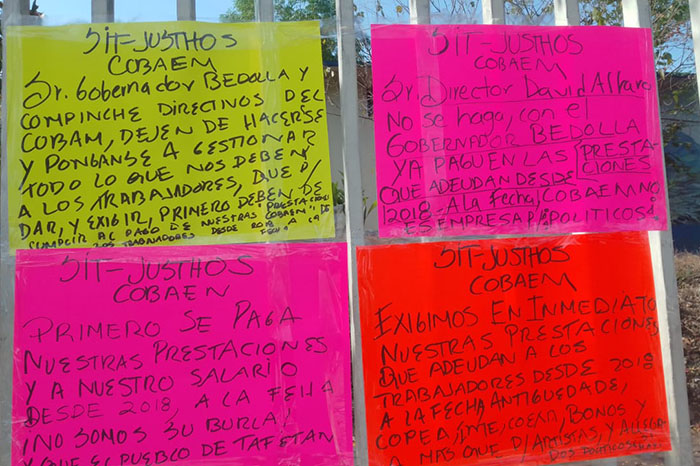 SIT-JUSTHOS
COBAEM
Sr. Gobernador BEDOLLA Y
COMPINCHE DIRECTINOS DEL
COBAM, DEJEN DE HACERSE
Y PONGANSE A GESTIONAR
TODO LO QUE NOS DEBEN
A LOS TRABAJADORES, QUE P/
DAR, Y EXIGIR, PRIMERO DEBEN DE
CUMPLIR AL PAGO DE NUESTRAS PRESTACION
LOS TRABAJADORES DESDE 2018 A LA
SIT-JUSTHOS
COBAEM
Sr. Director David Alfaro
No se haga, con el
GOBERNADOR BEDOLLA
YA PAGUEN LAS PRESTA-
CIONES
QUE ADEUDAN DESDE
2018 A la fecha, COBAEM NO
ES EMPRESA P/ POLITICOS!
SIT-JUSTHOS
COBAEN
PRIMERO SE PAGA
NUESTRAS PRESTACIONES
Y A NUESTRO SALARIO
DESDE 2018, A LA FEHA
¡NO SOMOS SU BURLA!
Y QUE EL PUEBLO DE TAFETAN
SIT-JUSTHOS
COBAEM
EXIGIMOS EN INMEDIATO
NUESTRAS PRESTACIONES
QUE ADEUDAN A LOS
TRABAJADORES DESDE 2018
A LA FECHA, ANTIGUEDADE,
BONOS Y
A MAS QUE P/ ARTISTAS, Y ALLEGA-
DOS POLITICOS